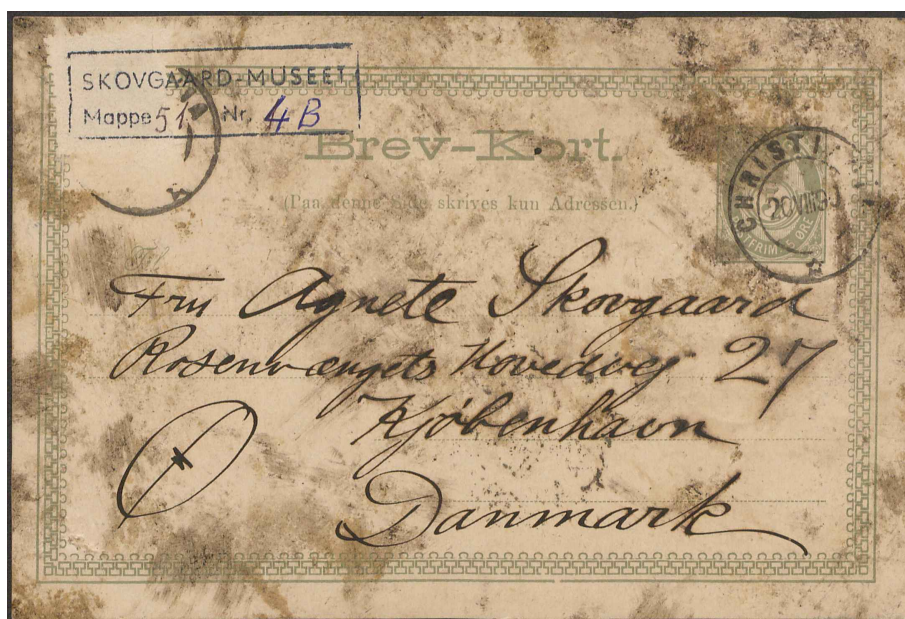 SKOVGAARD-MUSEET
Mappe 51 Nr. 4B
Brev-Kort.
(Paa denne Side skrives kun Adressen.)
CHRISTIANIA
20 VIII 93
Fru Agnete Skovgaard
Rosenvængets Hovedvej 27
Kjøbenhavn
Danmark